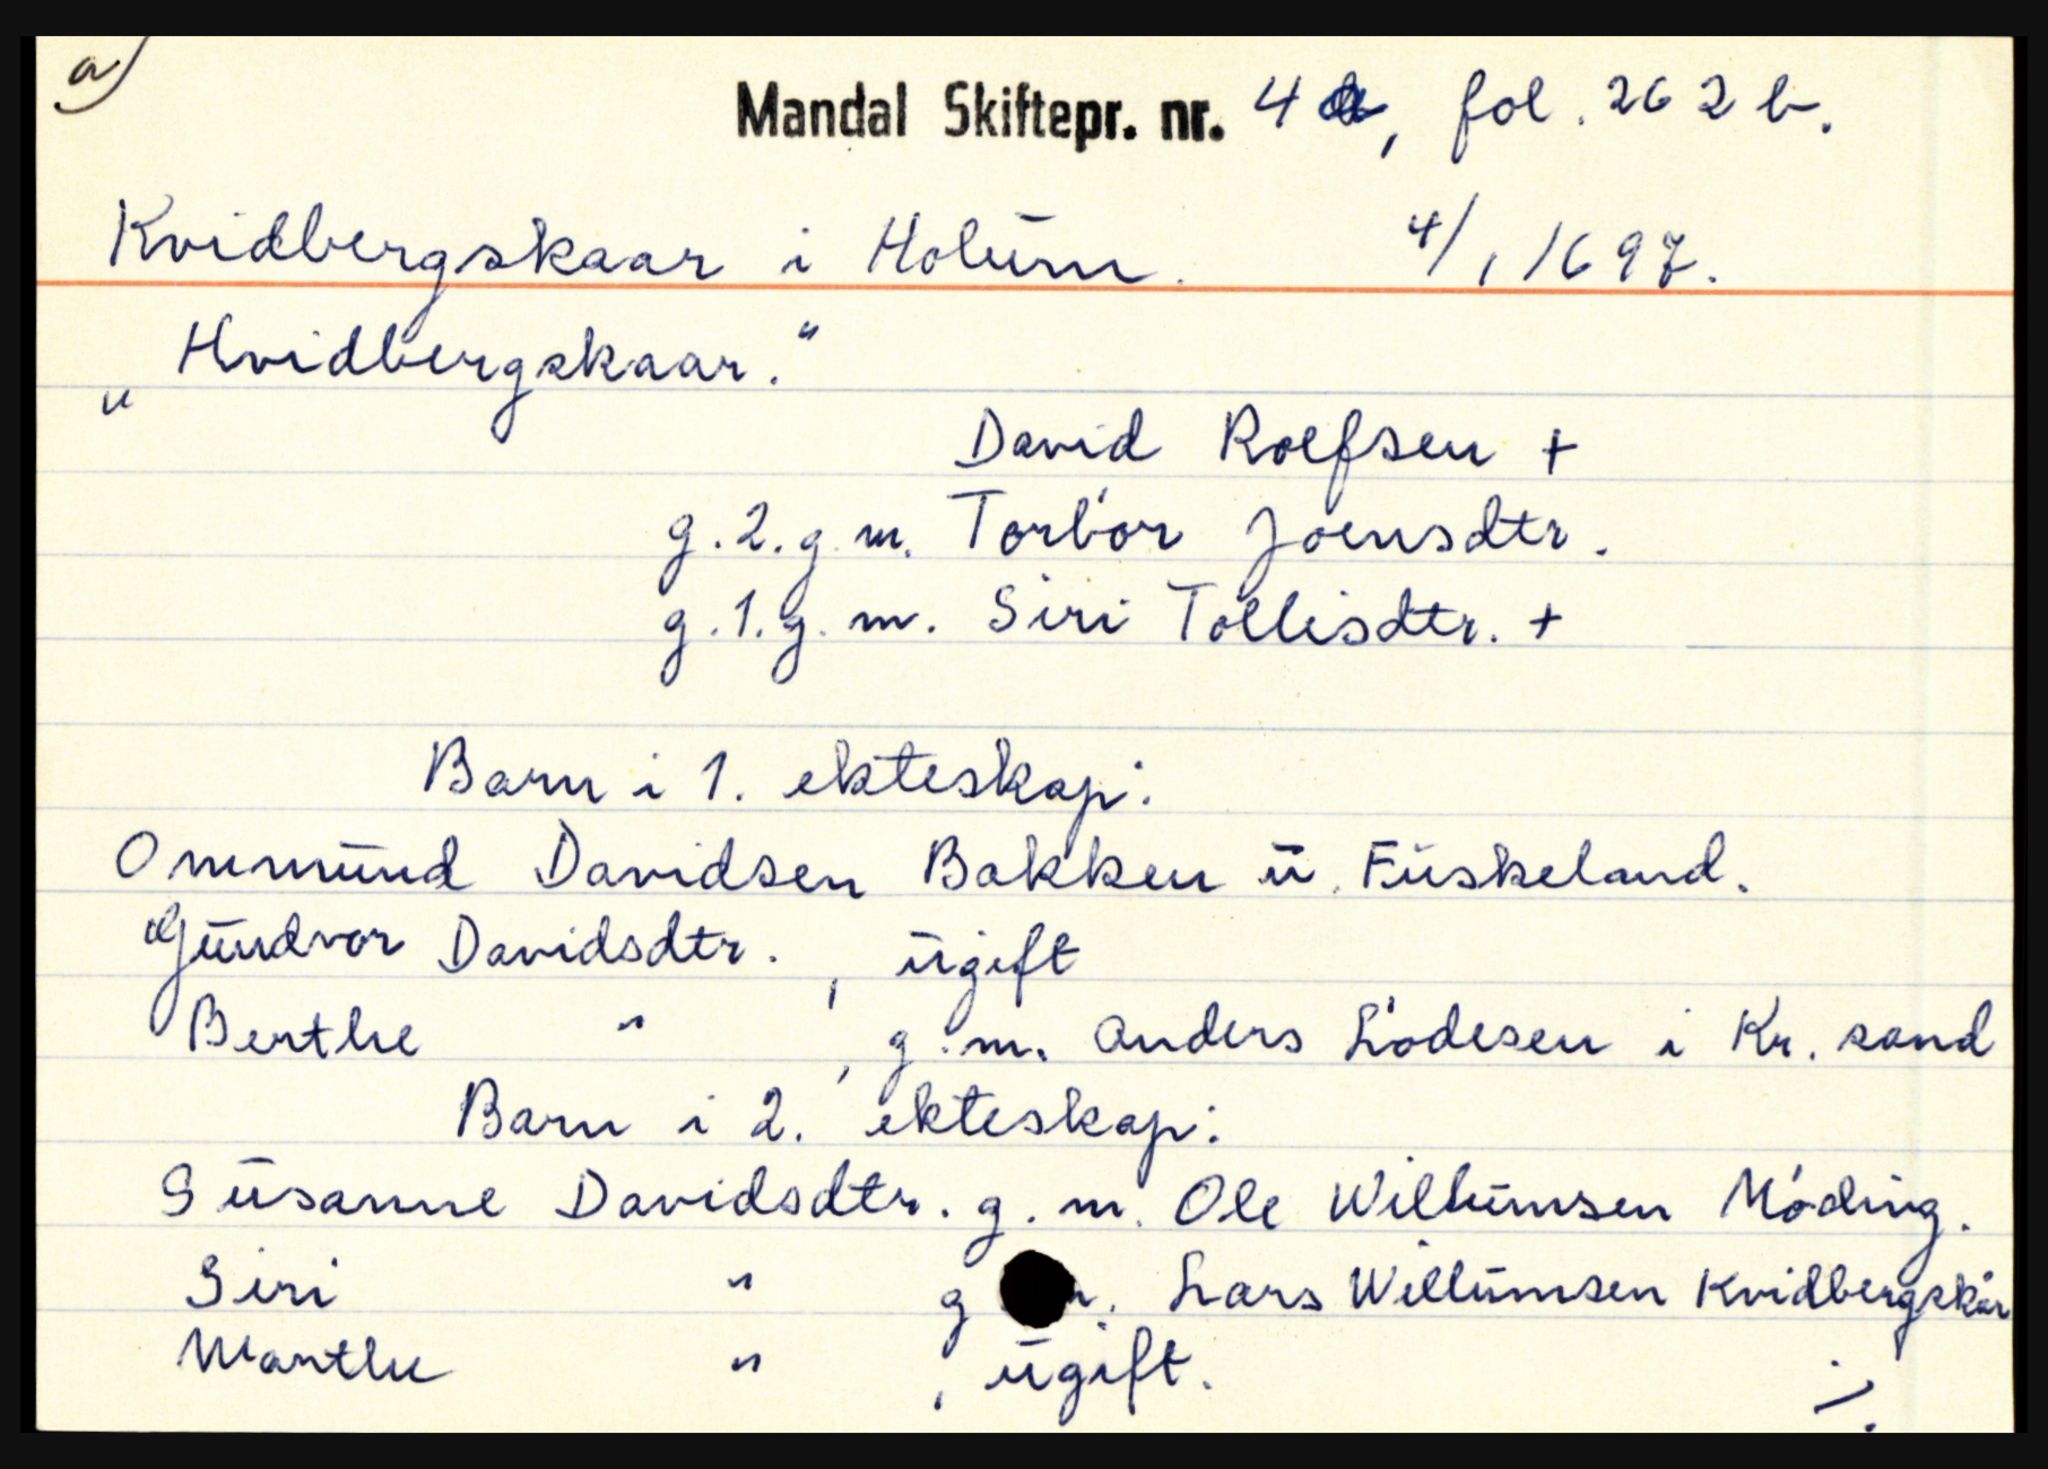 a)
Mandal Skiftepr. nr. 4a, fol. 262 b.
Kvidbergskaar i Holum. 4/1 1697.
„Hvidbergskaar.“
David Roefsen +
g. 2. g. m. Torbór Joensdtr.
g. 1. g. m. Siri Tollisdtr. +
Barn i 1. ekteskap:
Ommund Davidsen Bakken u. Fuskeland.
Gundvor Davidsdtr. , ugift
Berthe " , g. m. Anders Lódesen i Kr. sand
Barn i 2. ekteskap:
Susanne Davidsdtr. g. m. Ole Willumsen Móding.
Siri " g m. Lars Willumsen Kvidbergskår
Marthe " , ugift.